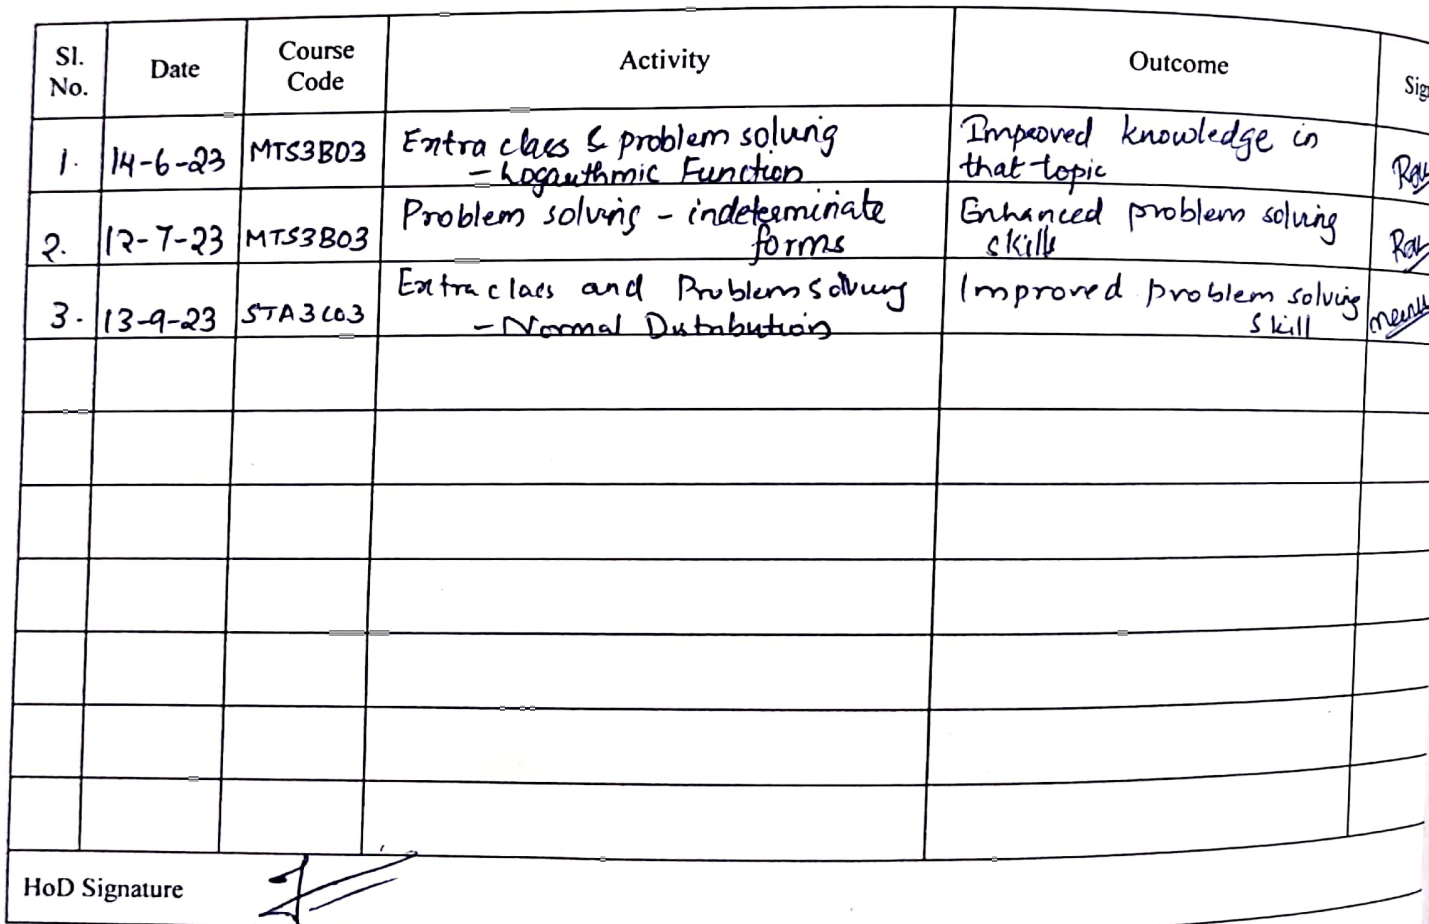 Sl. No.
Date
Course Code
Activity
Outcome
1.
14-6-23
MTS3B03
Extra class & problem solving
- Logarithmic Function
Improved knowledge in
that topic
2.
12-7-23
MTS3B03
Problem solving - indeterminate
forms
Enhanced problem solving
skills
3.
13-9-23
STA3C03
Extra class and Problem Solving
- Normal Distribution
Improved problem solving
skill
HoD Signature